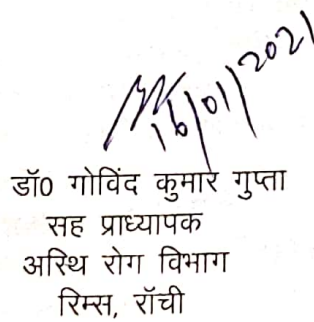 16/01/2021
डॉ0 गोविंद कुमार गुप्ता
सह प्राध्यापक
अस्थि रोग विभाग
रिम्स, रॉची